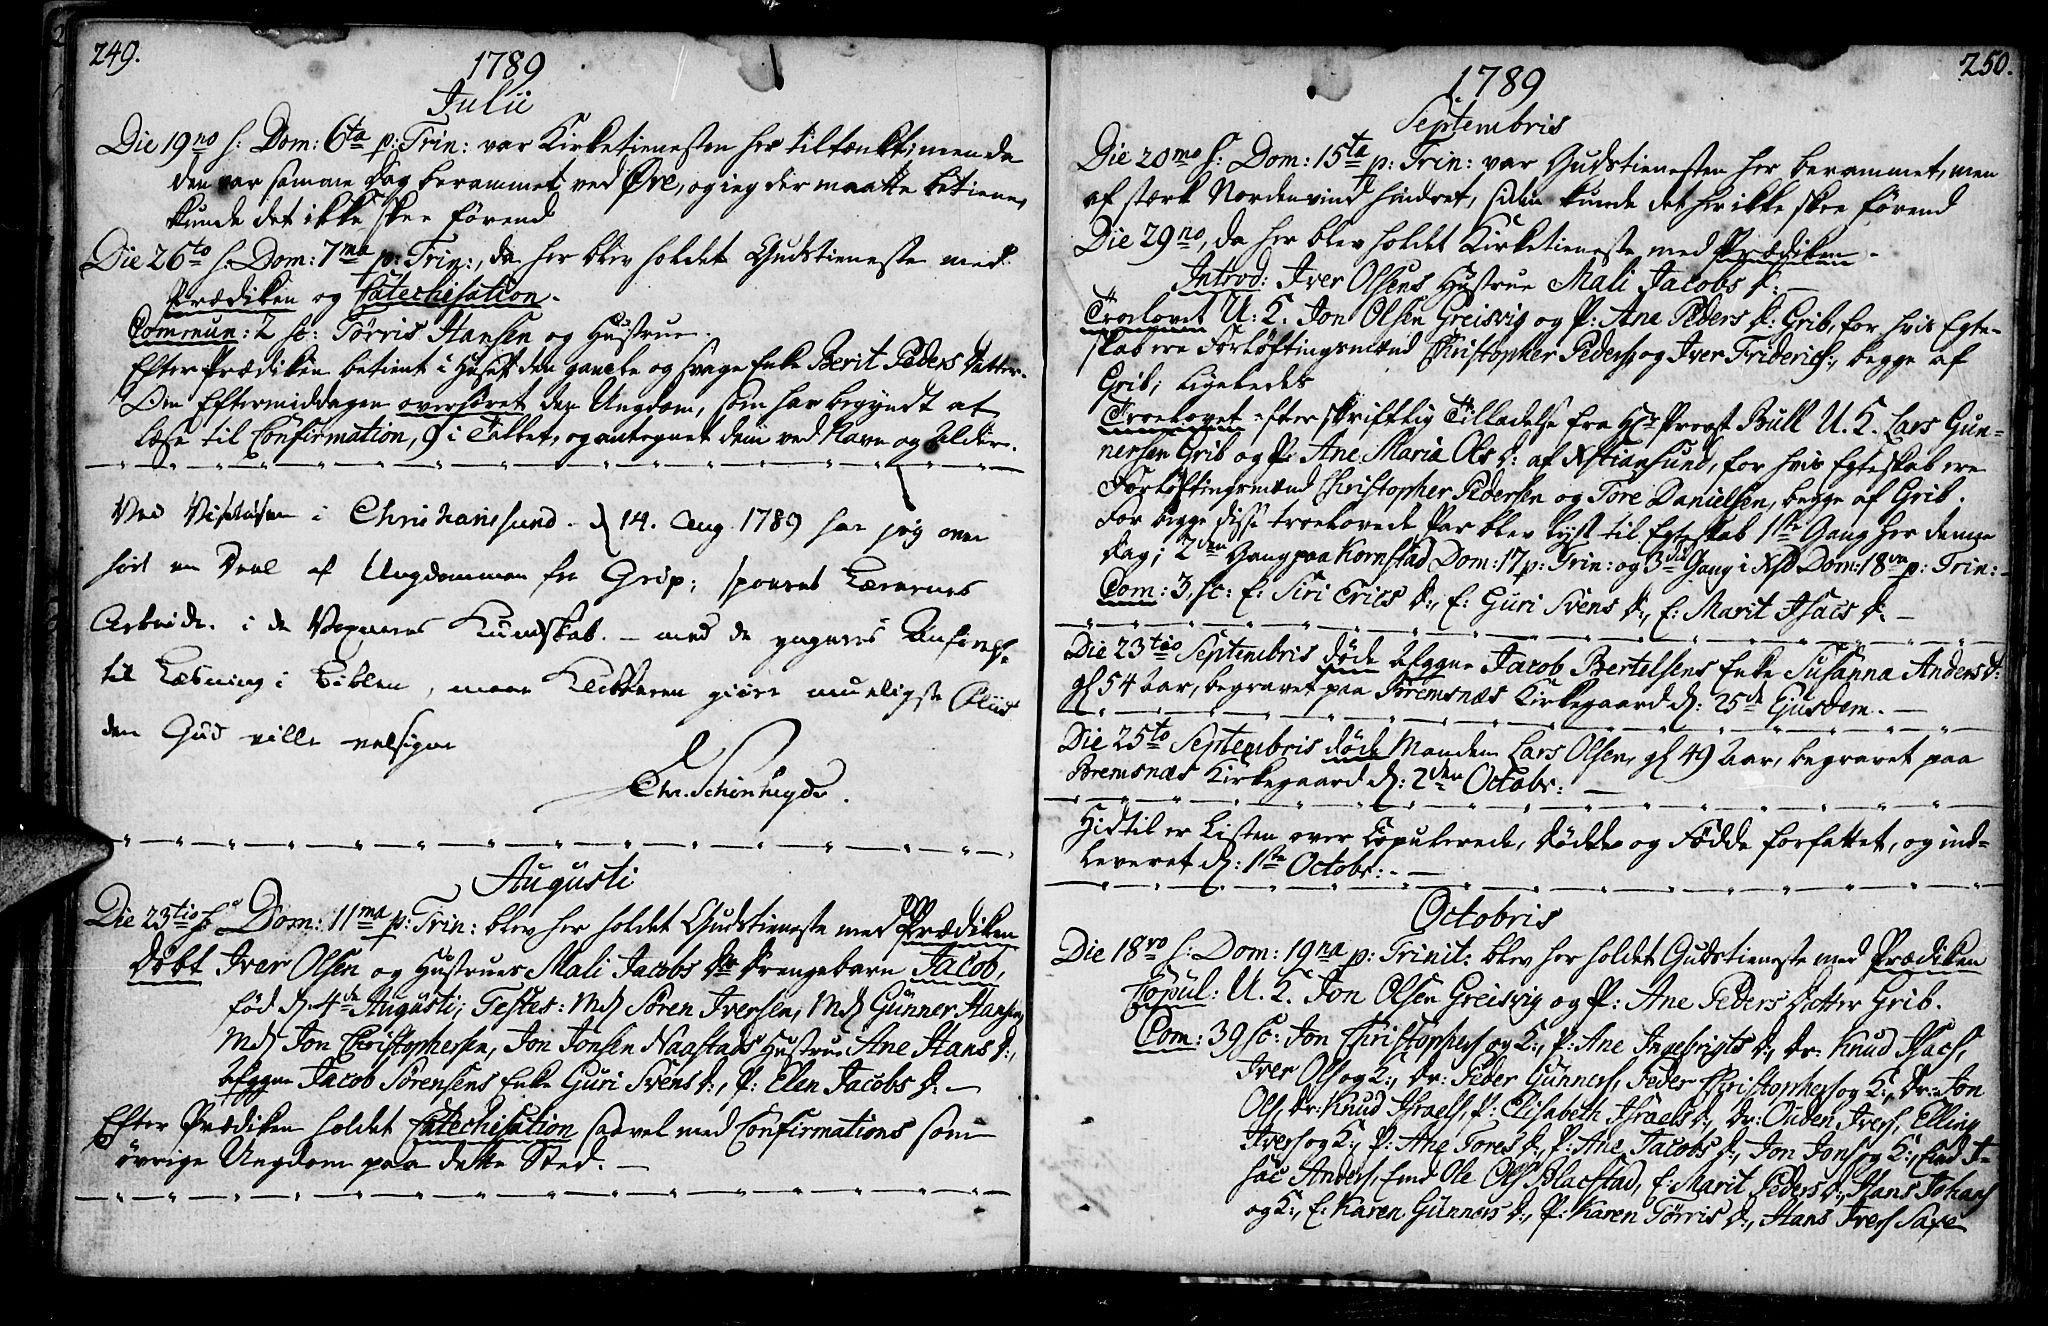 249.
1789
Julii
Die 19no h: Dom: 6ta p: Trin: var Kirketienesten her tiltænkt; men da
den var samme Dag berammet ved Øre, og ieg der maatte betiene,
kunde det ikke skee førend
Die 26to h: Dom: 7ma p: Trin:, da her blev holdet Gudstieneste med
Prædiken og Catechisation.
Commun: 2 st: Tørris Hansen og Hustrue.
Efter Prædiken betient i Huset den gamle og svage Enke Berit Peders Datter.
Om Eftermiddagen overhøret den Ungdom, som har begyndt at
læse til Confirmation, 9 i Tallet, og antegnet dem ved Navn og Alder.
Ved Visitatsen i Christiansund d 14. Aug. 1789 har jeg over
hørt en Deel af Ungdommen fra Grip; sporet Lærernes
Arbeide i de Voxnes Kundskab. - med de yngres Anførsel
til Læsning i Biblen, maae Klokkeren giøre mueligste Fliid
den Gud ville velsigne
Chr. Schønheyder.
Augusti
Die 23tio h: Dom: 11ma p: Trin: blev her holdet Gudstieneste med Prædiken
Døbt Iver Olsen og Hustrues Mali Jacobs Dr Drengebarn Jacob,
fød d. 4de Augusti; Testes: Md Sören Iversen, Md Gunner Hansen,
Md Jon Christophersen, Jon Jonsen Naastads Hustrue Ane Hans D:,
afggne Jacob Sörensens Enke Guri Svens D:, P: Elen Jacobs D: -
Efter Prædiken holdet Catechisation saavel med Confirmations som
övrige Ungdom paa dette Sted. -
250.
1789
Septembris
Die 20mo h: Dom: 15ta p: Trin: var Gudstienesten her berammet, men
af stærk Nordenvind hindret, siden kunde det her ikke skee förend
Die 29no, da her blev holdet Kirketieneste med Prædiken.
Introd: Iver Olsens Hustrue Mali Jacobs D: -
Troelovet U: K. Jon Olsen Greisvig og P: Ane Peders D: Grib, for hvis Egte-
skab ere Forløftingsmænd Christopher Peders: og Iver Friderichs:, begge af
Grib; ligeledes
Troelovet efter skriftlig Tilladelse fra Hr Provst Bull U. K. Lars Gun-
nersen Grib og P: Ane Maria Ols D: af Xstiansund, for hvis Egteskab ere
Forløftingsmænd Christopher Pedersen og Tore Danielsen, begge af Grib.
For begge disse troelovede Par blev lyst til Egteskab 1ste Gang her denne
Dag; 2den Gang paa Kornstad Dom: 17 p: Trin: og 3die Gang i Xsd Dom: 18va p: Trin: -
Com: 3 st: E: Siri Erics D:, E: Guri Svens D:, E: Marit Isacs D: -
Die 23tio Septembris døde afggne Jacob Bertelsens Enke Susanna Anders D:
gl 54 Aar, begravet paa Bremsnæs Kirkegaard d: 25de Ejusdem. -
Die 25to Septembris døde Manden Lars Olsen, gl 49 Aar, begravet paa
Bremsnæs Kirkegaard d: 2den Octobr: -
Hidtil er Listen over Copulerede, Dødde og Fødde forfattet, og ind-
leveret d: 1ste Octobr: -
Octobris
Die 18vo h: Dom: 19na p: Trinit: blev her holdet Gudstieneste med Prædiken
Copul: U. K. Jon Olsen Greisvig og P: Ane Peders Datter Grib.
Com: 39 st: Jon Christophers og K:, P: Ane Ingebrigts D:, Dr: Knud Isacs,
Iver Ols og K:, Dr: Peder Gunners, Peder Christophers og K:, Dr: Jon
Ols, Dr: Knud Israels, P: Elisabeth Israels D:, Dr: Ouden Ivers, Elling
Ivers og K:, P: Ane Tores D:, P: Ane Jacobs D:, Jon Jons og K:, Em I-
sac Anders, Em Ole Ols Blacstad, E: Marit Peders D:, Hans Johans
og K:, E: Karen Gunners D:, P: Karen Tørris D:, Hans Ivers Saxe